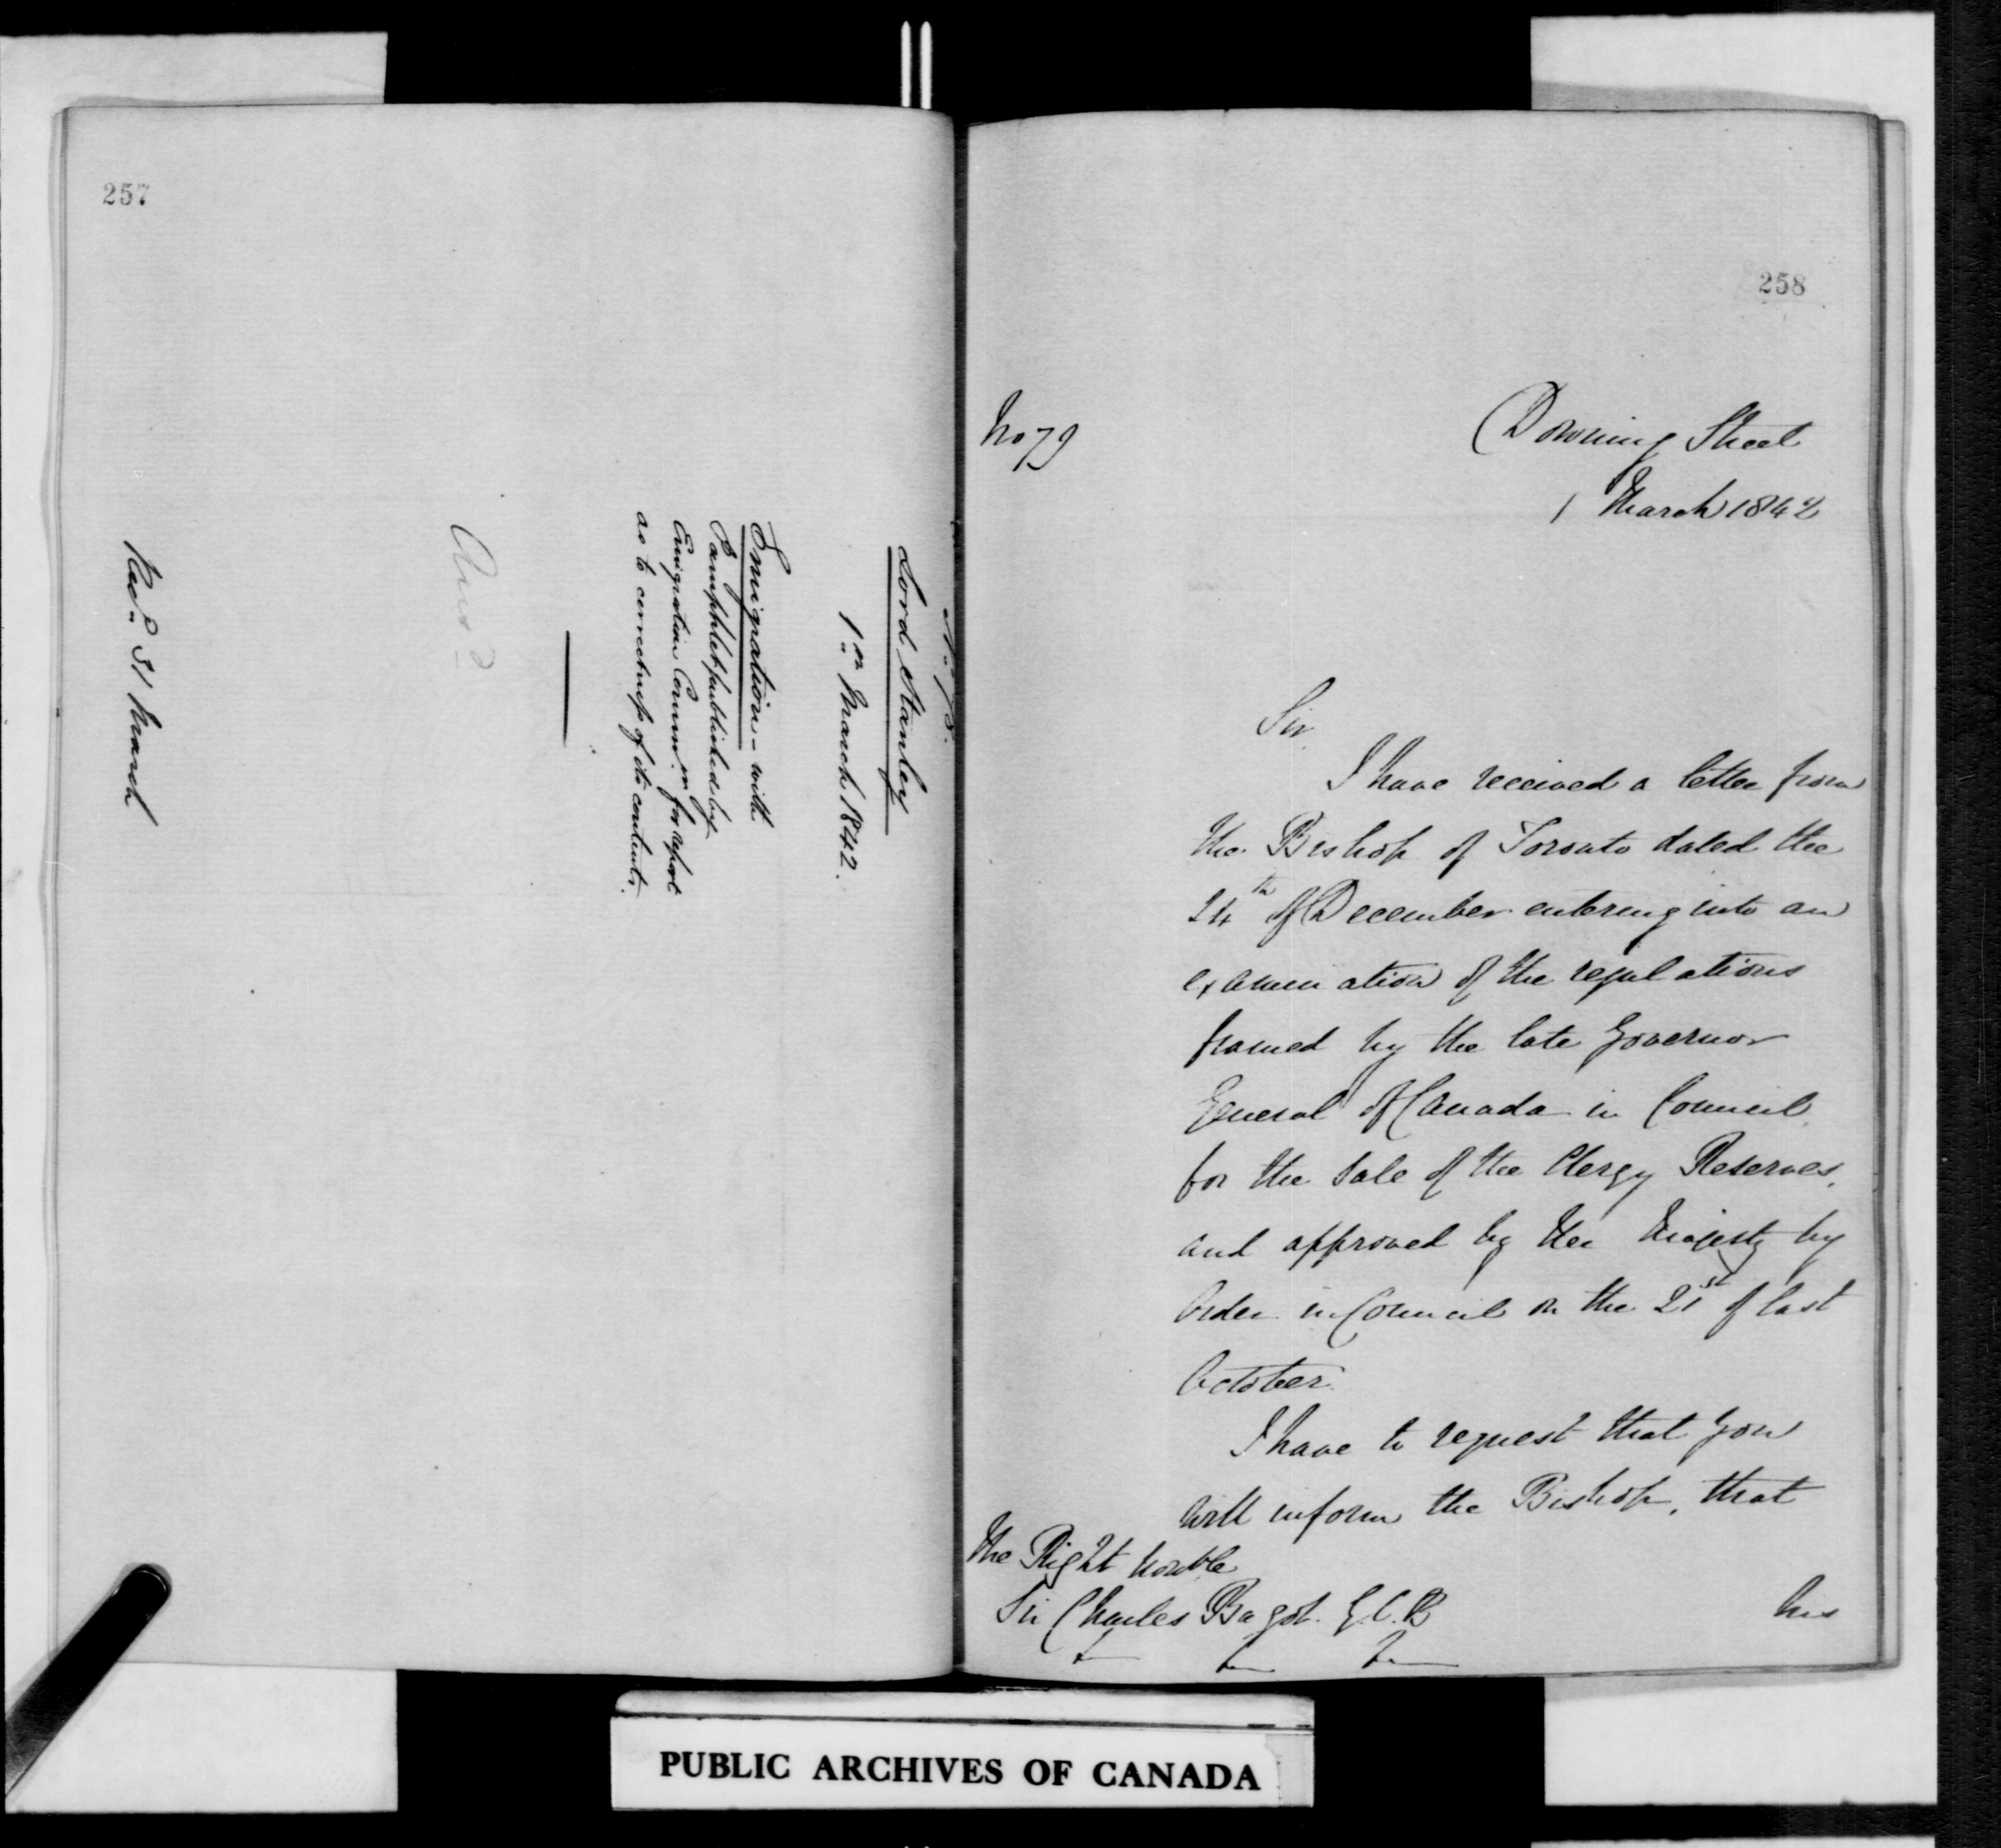 257
Lord Stanley
1st March 1842.
Emigration – with
Pamphlet published by
Emigration Commrs for report
as to correctness of its contents.
Ansd
Recd 31 March
258
No 79
Downing Street
1 March 1842
Sir
I have received a letter from
the Bishop of Toronto dated the
24th of December entering into an
examination of the regulations
framed by the late Governor
General of Canada in Council
for the Sale of the Clergy Reserves,
and approved by Her Majesty by
Order in Council on the 21st of last
October.
I have to request that you
will inform the Bishop, that
The Right Honble
Sir Charles Bagot. G.C.B
his
PUBLIC ARCHIVES OF CANADA